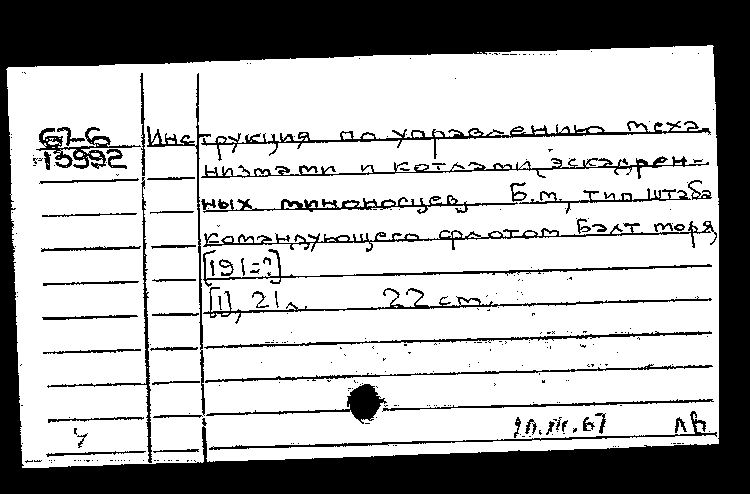 67-6 Инструкция по управлению меха-
13992 низмами и котлами эскадрен-
ных миноносцев. Б.м., тип штаба
командующего флотом Балт моря,
[191=?]
[1], 21 л. 22 cm.
67 ЛВ